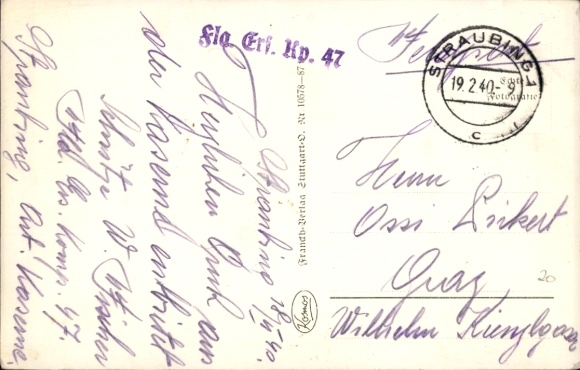 Flg. Erf. Kp. 47
Straubing 18/II 40.
Herzlichen Gruß aus
der Kaserne entbietet
Schütze W.
Straubing, Art. Kaserne.
Franckh-Verlag Stuttgart-O. Nr 10578-87
Kosmos
Feldpost
STRAUBING 1
19.2.40-9
c
Echte
Fotografie
Herrn
Ossi
Graz
Wilhelm Kienzlgasse
20